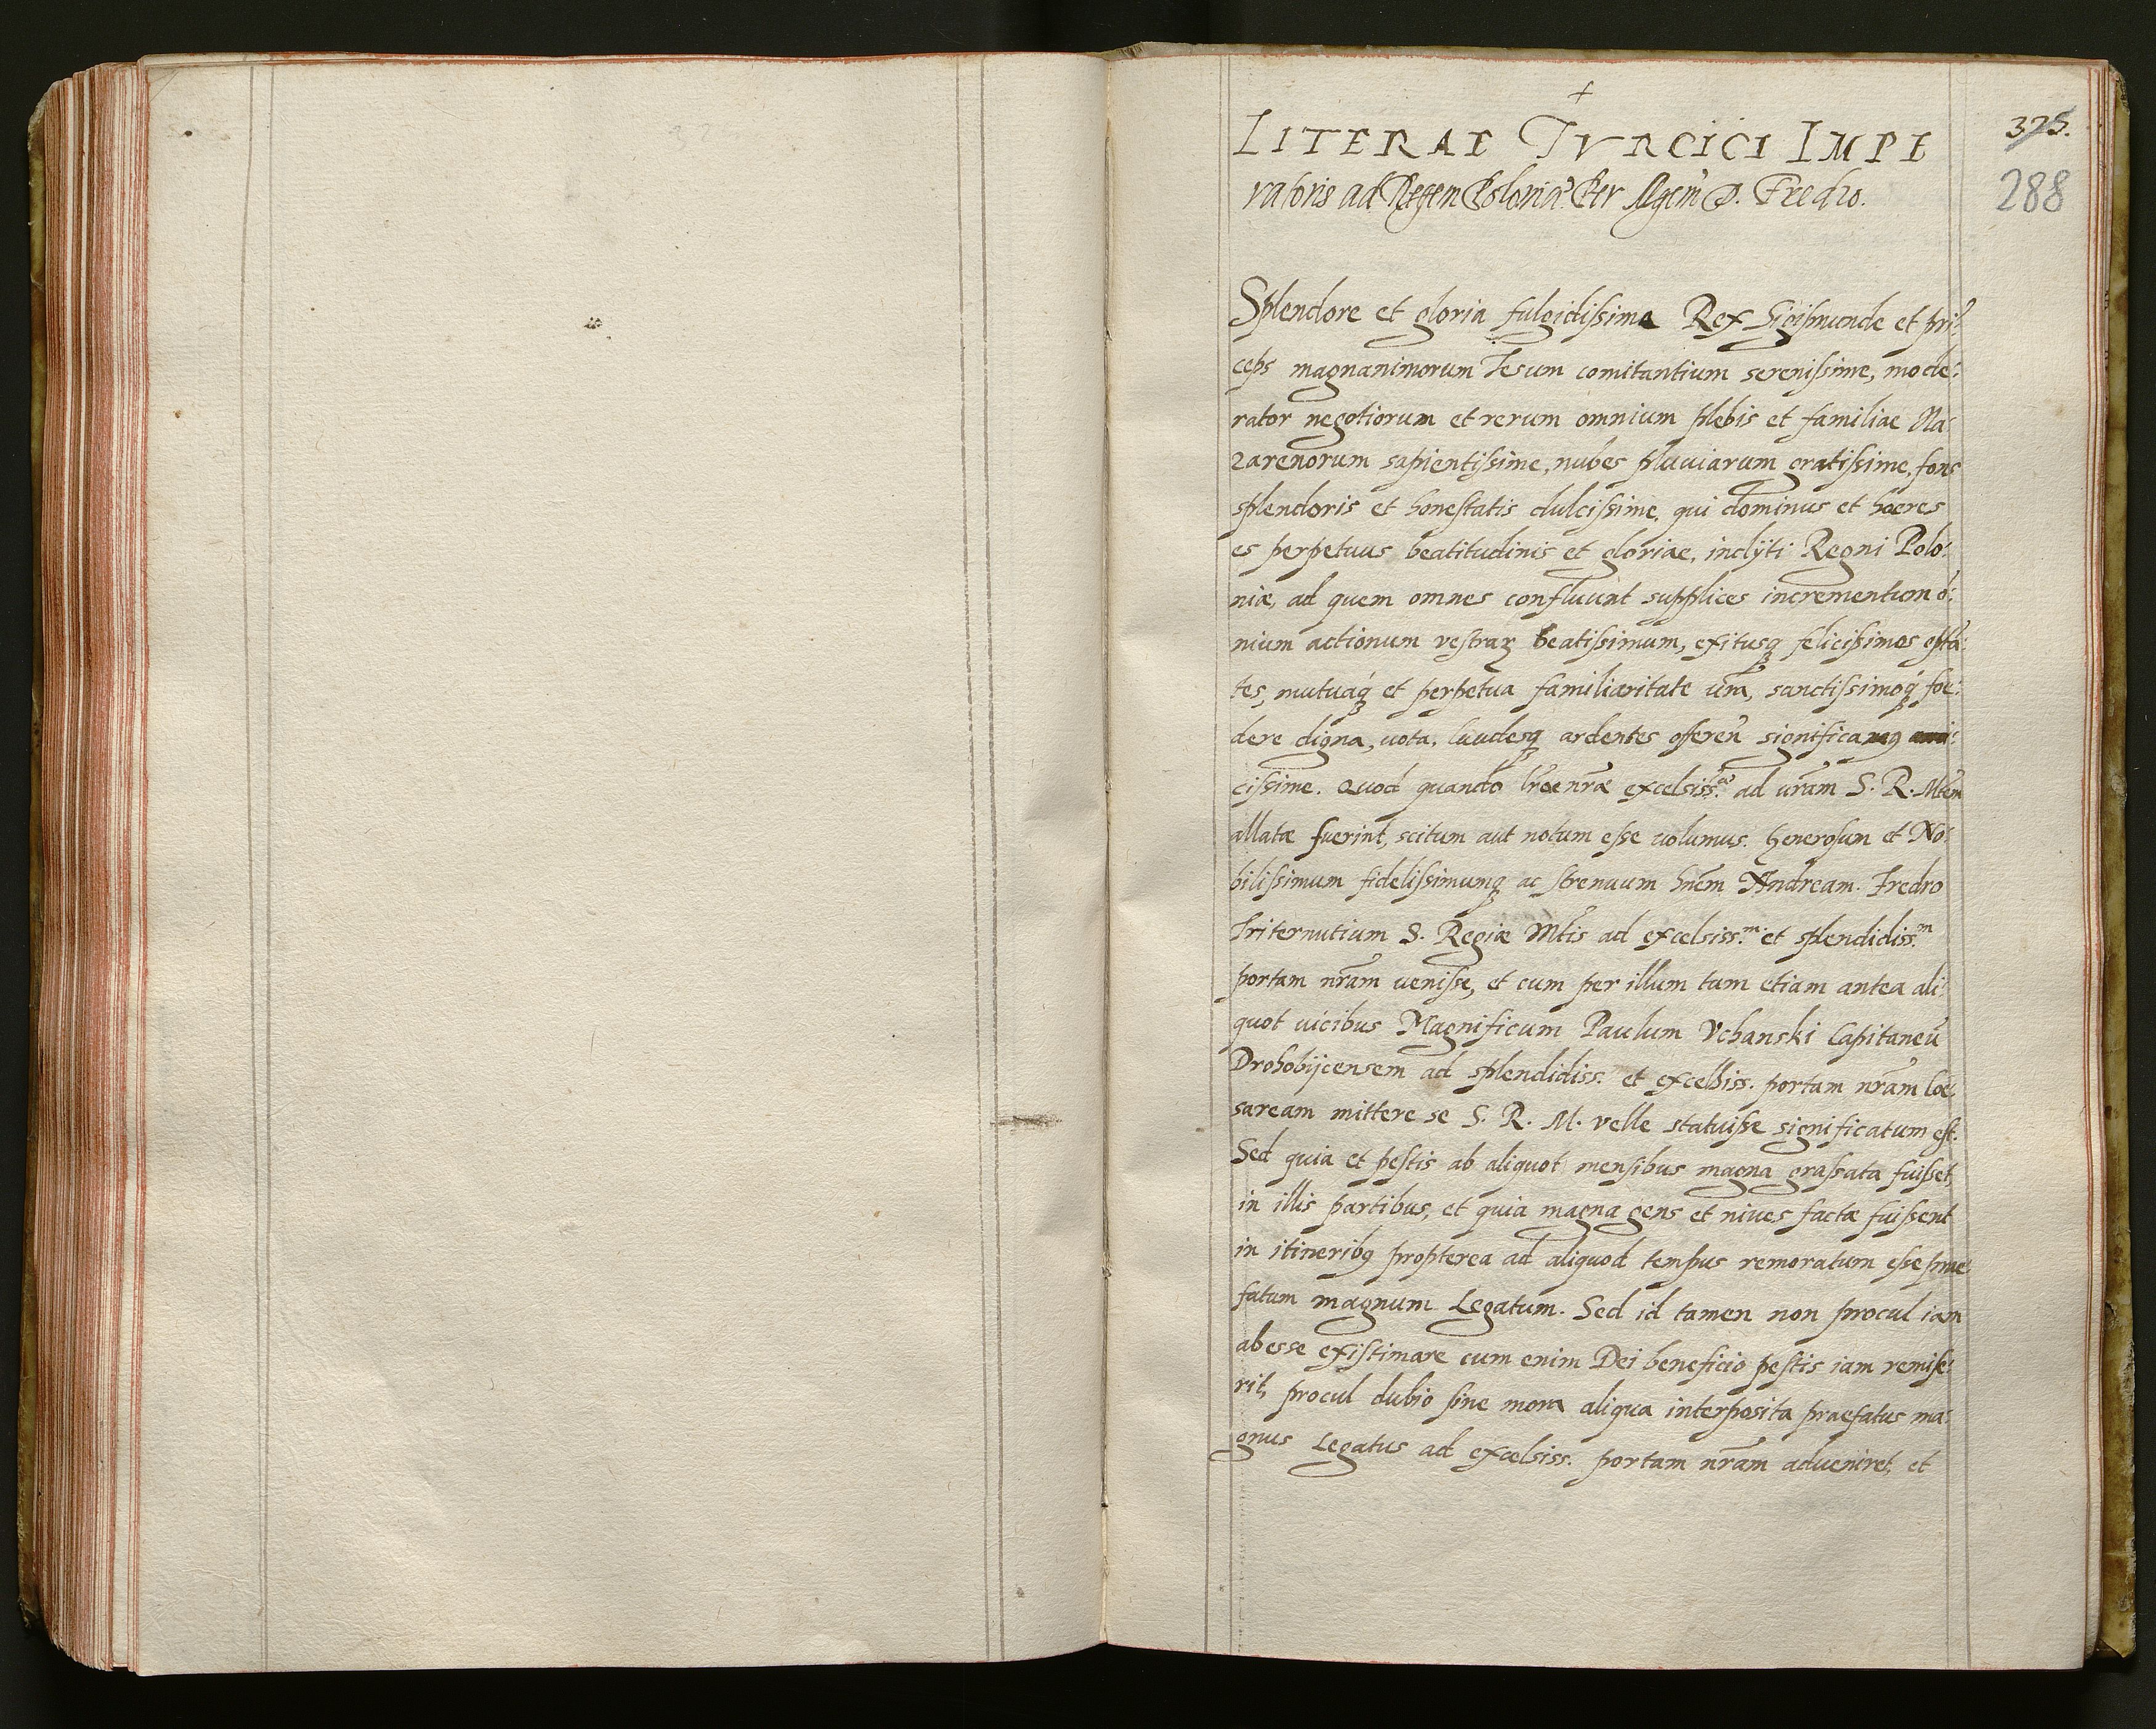 +
LITERAE TVRCICI IMPE
ratoris ad Regem Poloniæ Per D. Fredro.
325.
288
Splendore et gloria fulgidißime Rex Sigismunde et prī:
ceps magnanimorum Iesum comitantium serenißime, mode:
rator negotiorum et rerum omnium plebis et familiae Na:
zarenorum sapientißime, nubes pluuiarum gratißime, fons
splendoris et honestatis dulcißime, qui dominus et hæres
es perpetuus beatitudinis et gloriae, inclÿti Regni Polo:
niæ, ad quem omnes confluunt supplices incrementum ō:
nium actionum vestraꝝ beatißimum, exitusqꝫ felicißimos optā:
tes, mutuaqꝫ et perpetua familiaritate vr̃a, sanctißimoqꝫ foe:
dere digna, uota, laudesqꝫ ardentes offereñ significamꝰ ami:
cißime. Quod quando lr̃æ nr̃æ excelsiss.æ ad ur̃am S. R. Mtem
allatæ fuerint, scitum aut notum eße uolumus. Generosum et No:
bilißimum fidelißimumqꝫ ac strenuum hñem Andream Fredro
Internutium S. Regiæ Mtis ad excelsiss.m et splendidiss.m
portam nr̃am ueniße, et cum per illum tum etiam antea ali:
quot uicibus Magnificum Paulum Vchanski Capitaneū
Drohobÿcensem ad splendidiss. et excelsiss. portam nr̃am Coe:
saream mittere se S. R. M. velle statuiße significatum est.
Sed quia et pestis ab aliquot mensibus magna graßata fuißet,
in illis partibus, et quia magna gens et niues factæ fuißent
in itineribꝰ propterea ad aliquod tempus remoratum eße prae:
fatum magnum Legatum. Sed id tamen non procul iam
abesse existimare cum enim Dei beneficio pestis iam remise:
rit, procul dubio sine mora aliqua interposita praefatus ma:
gnus Legatus ad excelsiss. portam nr̃am adueniret, et